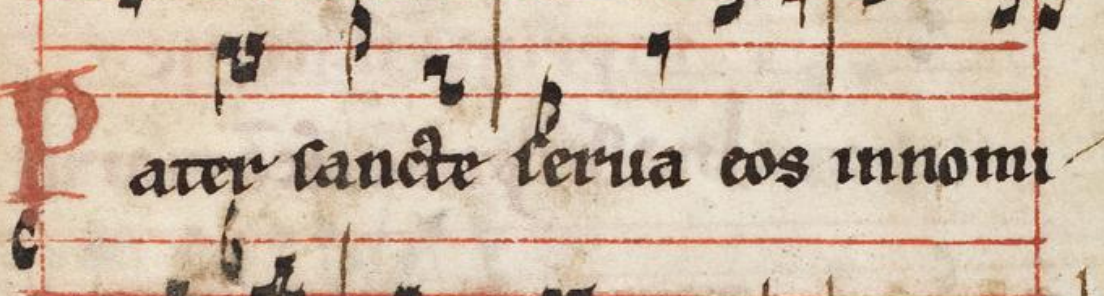 Pater sancte serua eos innomi